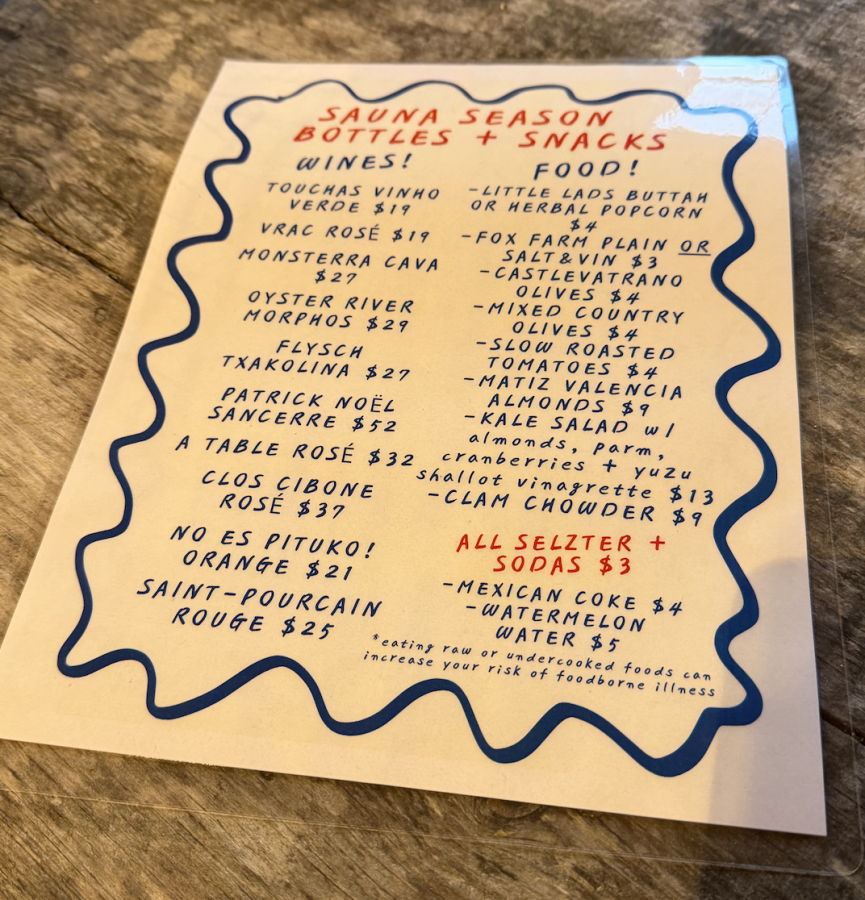 SAUNA SEASON
BOTTLES + SNACKS
WINES!
TOUCHAS VINHO
VERDE $19
VRAC ROSÉ $19
MONSTERRA CAVA
$27
OYSTER RIVER
MORPHOS $29
FLYSCH
TXAKOLINA $27
PATRICK NOËL
SANCERRE $52
A TABLE ROSÉ $32
CLOS CIBONE
ROSÉ $37
NO ES PITUKO!
ORANGE $21
SAINT-POURCAIN
ROUGE $25
FOOD!
-LITTLE LADS BUTTAH
OR HERBAL POPCORN
$4
-FOX FARM PLAIN OR
SALT&VIN $3
-CASTLEVATRANO
OLIVES $4
-MIXED COUNTRY
OLIVES $4
-SLOW ROASTED
TOMATOES $4
-MATIZ VALENCIA
ALMONDS $9
-KALE SALAD w/
almonds, parm,
cranberries + yuzu
shallot vinagrette $13
-CLAM CHOWDER $9
ALL SELZTER +
SODAS $3
-MEXICAN COKE $4
-WATERMELON
WATER $5
*eating raw or undercooked foods can
increase your risk of foodborne illness